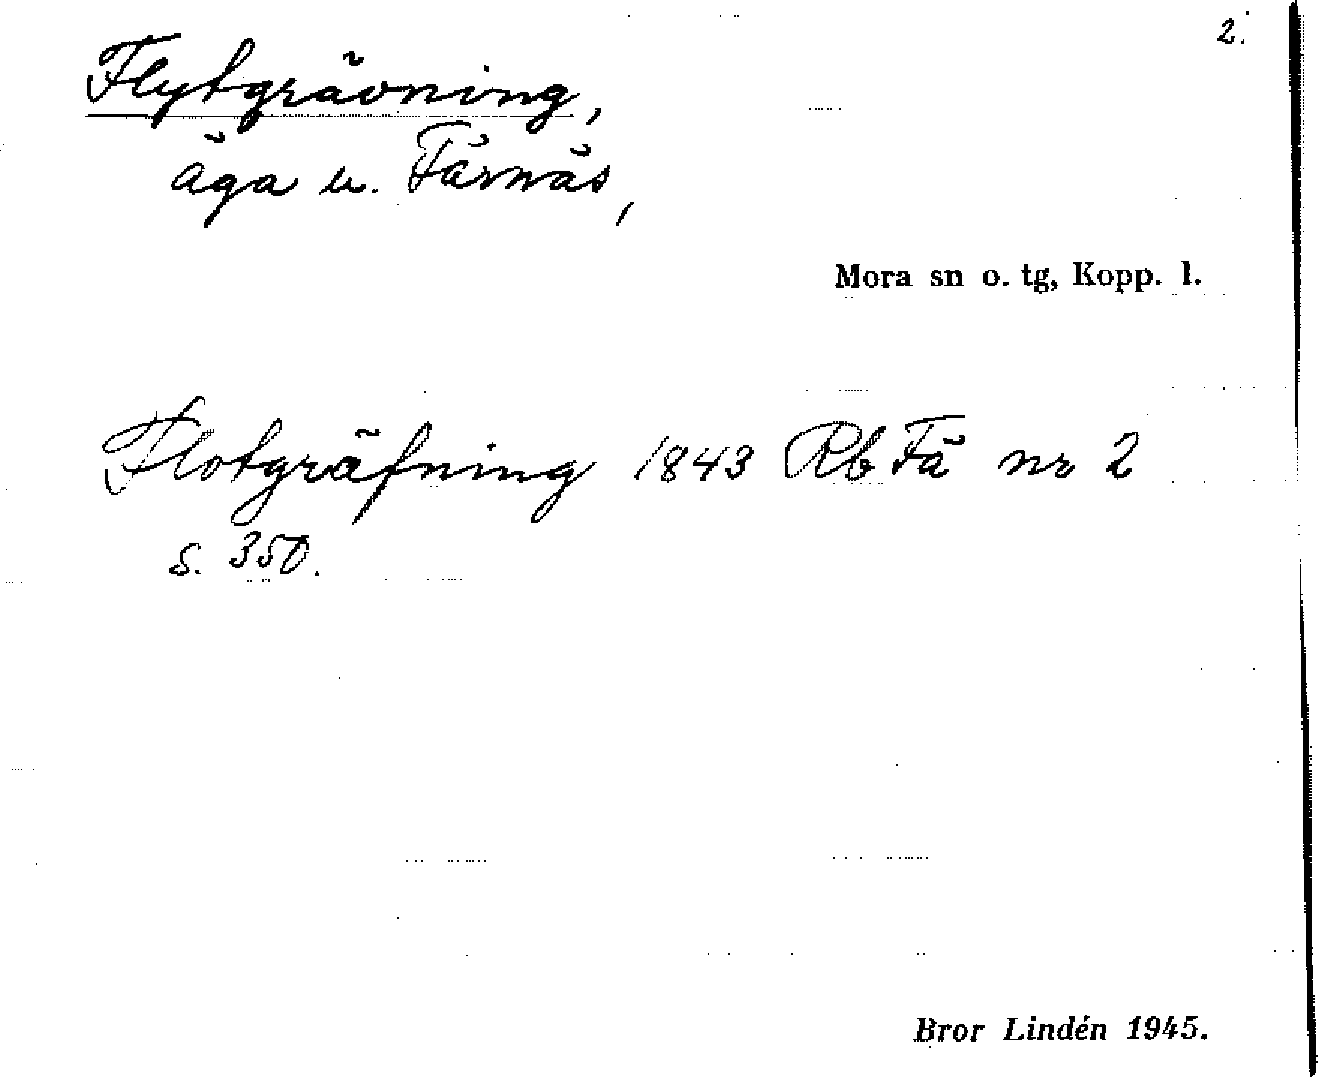 2.
Flytgrävning,
äga u. Färnäs,
Mora sn o. tg, Kopp. l.
Flotgräfning 1843 Rb Fä nr 2
s. 350.
Bror Lindén 1945.